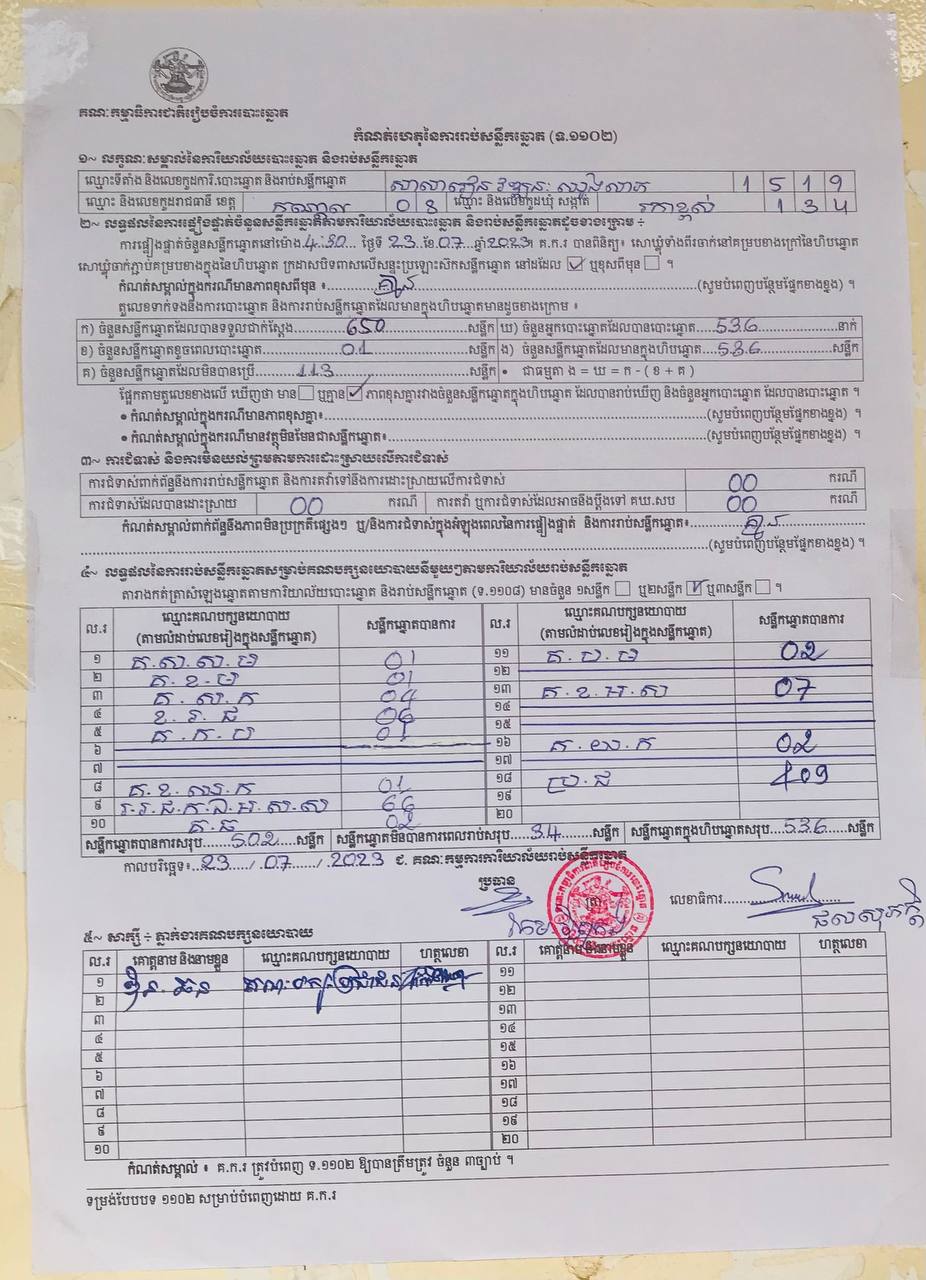 គណៈកម្មាធិការជាតិរៀបចំការបោះឆ្នោត
កំណត់ហេតុនៃការរាប់សន្លឹកឆ្នោត (ទ.១១០២)
១~ លក្ខណៈសម្គាល់នៃការិយាល័យបោះឆ្នោត និងរាប់សន្លឹកឆ្នោត
ឈ្មោះទីតាំង និងលេខកូដការិ.បោះឆ្នោត និងរាប់សន្លឹកឆ្នោត សាលារៀន 1 5 1 9
ឈ្មោះ និងលេខកូដរាជធានី ខេត្ត កណ្តាល 0 8 ឈ្មោះ និងលេខកូដឃុំ សង្កាត់ រកាខ្ពស់ 1 3 4
២~ លទ្ធផលនៃការផ្ទៀងផ្ទាត់ចំនួនសន្លឹកឆ្នោតតាមការិយាល័យបោះឆ្នោត និងរាប់សន្លឹកឆ្នោតដូចខាងក្រោម ÷
ការផ្ទៀងផ្ទាត់ចំនួនសន្លឹកឆ្នោតនៅម៉ោង 4:30 ថ្ងៃទី 23 ខែ 07 ឆ្នាំ 2023 គ.ក.រ បានពិនិត្យ៖ សោឃ្មុំទាំងពីរចាក់នៅគម្របខាងក្រៅនៃហិបឆ្នោត
សោឃ្មុំចាក់ភ្ជាប់គម្របខាងក្នុងនៃហិបឆ្នោត ក្រដាសបិទពាសលើសន្ទះប្រឡោះស៊កសន្លឹកឆ្នោត នៅដដែល ☑ ឬខុសពីមុន ☐ ។
កំណត់សម្គាល់ក្នុងករណីមានភាពខុសពីមុន ៖ គ្មាន (សូមបំពេញបន្ថែមផ្នែកខាងខ្នង) ។
តួលេខទាក់ទងនឹងការបោះឆ្នោត និងការរាប់សន្លឹកឆ្នោតដែលមានក្នុងហិបឆ្នោតមានដូចខាងក្រោម ៖
ក) ចំនួនសន្លឹកឆ្នោតដែលបានទទួលជាក់ស្តែង 650 សន្លឹក ឃ) ចំនួនអ្នកបោះឆ្នោតដែលបានបោះឆ្នោត 536 នាក់
ខ) ចំនួនសន្លឹកឆ្នោតខូចពេលបោះឆ្នោត 01 សន្លឹក ង) ចំនួនសន្លឹកឆ្នោតដែលមានក្នុងហិបឆ្នោត 536 សន្លឹក
គ) ចំនួនសន្លឹកឆ្នោតដែលមិនបានប្រើ 113 សន្លឹក • ជាធម្មតា ង = ឃ = ក - ( ខ + គ )
ផ្អែកតាមតួលេខខាងលើ ឃើញថា មាន ☐ ឬគ្មាន ☑ ភាពខុសគ្នារវាងចំនួនសន្លឹកឆ្នោតក្នុងហិបឆ្នោត ដែលបានរាប់ឃើញ និងចំនួនអ្នកបោះឆ្នោត ដែលបានបោះឆ្នោត ។
• កំណត់សម្គាល់ក្នុងករណីមានភាពខុសគ្នា៖ (សូមបំពេញបន្ថែមផ្នែកខាងខ្នង) ។
• កំណត់សម្គាល់ក្នុងករណីមានវត្ថុមិនមែនជាសន្លឹកឆ្នោត៖ (សូមបំពេញបន្ថែមផ្នែកខាងខ្នង) ។
៣~ ការជំទាស់ និងការមិនយល់ព្រមតាមការដោះស្រាយលើការជំទាស់
ការជំទាស់ពាក់ព័ន្ធនឹងការរាប់សន្លឹកឆ្នោត និងការតវ៉ាទៅនឹងការដោះស្រាយលើការជំទាស់ 00 ករណី
ការជំទាស់ដែលបានដោះស្រាយ 00 ករណី ការតវ៉ា ឬការជំទាស់ដែលអាចនឹងប្តឹងទៅ គឃ.សប 00 ករណី
កំណត់សម្គាល់ពាក់ព័ន្ធនឹងភាពមិនប្រក្រតីផ្សេងៗ ឬ/និងការជំទាស់ក្នុងអំឡុងពេលនៃការផ្ទៀងផ្ទាត់ និងការរាប់សន្លឹកឆ្នោត៖ គ្មាន
(សូមបំពេញបន្ថែមផ្នែកខាងខ្នង) ។
៤~ លទ្ធផលនៃការរាប់សន្លឹកឆ្នោតសម្រាប់គណបក្សនយោបាយនីមួយៗតាមការិយាល័យរាប់សន្លឹកឆ្នោត
តារាងកត់ត្រាសំឡេងឆ្នោតតាមការិយាល័យបោះឆ្នោត និងរាប់សន្លឹកឆ្នោត (ទ.១១០៨) មានចំនួន ១សន្លឹក ☐ ឬ២សន្លឹក ☑ ឬ៣សន្លឹក ☐ ។
ល.រ ឈ្មោះគណបក្សនយោបាយ (តាមលំដាប់លេខរៀងក្នុងសន្លឹកឆ្នោត) សន្លឹកឆ្នោតបានការ ល.រ ឈ្មោះគណបក្សនយោបាយ (តាមលំដាប់លេខរៀងក្នុងសន្លឹកឆ្នោត) សន្លឹកឆ្នោតបានការ
១ គ.ស.ស.ម 01 ១១ គ.ប.ម 02
២ គ.ខ.ម 01 ១២
៣ គ.ស.ក 04 ១៣ គ.ខ.អ.ស 07
៤ ខ.រ.ជ 06 ១៤
៥ គ.ក.ប 01 ១៥
៦ ១៦ គ.យ.ក 02
៧ ១៧
៨ គ.ខ.ឃ.ក 01 ១៨ ប្រ.ជ 409
៩ 66 ១៩
១០ គ.ធ 02 ២០
សន្លឹកឆ្នោតបានការសរុប 502 សន្លឹក សន្លឹកឆ្នោតមិនបានការពេលរាប់សរុប 34 សន្លឹក សន្លឹកឆ្នោតក្នុងហិបឆ្នោតសរុប 536 សន្លឹក
កាលបរិច្ឆេទ៖ 23 / 07 / 2023 ជ. គណៈកម្មការការិយាល័យរាប់សន្លឹកឆ្នោត
ប្រធាន
ត្រា
លេខាធិការ
ផលសុភក្តិ
៥~ សាក្សី ÷ ភ្នាក់ងារគណបក្សនយោបាយ
ល.រ គោត្តនាម និងនាមខ្លួន ឈ្មោះគណបក្សនយោបាយ ហត្ថលេខា ល.រ គោត្តនាម និងនាមខ្លួន ឈ្មោះគណបក្សនយោបាយ ហត្ថលេខា
១ គណៈបក្សប្រជាជន ១១
២ ១២
៣ ១៣
៤ ១៤
៥ ១៥
៦ ១៦
៧ ១៧
៨ ១៨
៩ ១៩
១០ ២០
កំណត់សម្គាល់ ៖ គ.ក.រ ត្រូវបំពេញ ទ.១១០២ ឱ្យបានត្រឹមត្រូវ ចំនួន ៣ច្បាប់ ។
ទម្រង់បែបបទ ១១០២ សម្រាប់បំពេញដោយ គ.ក.រ